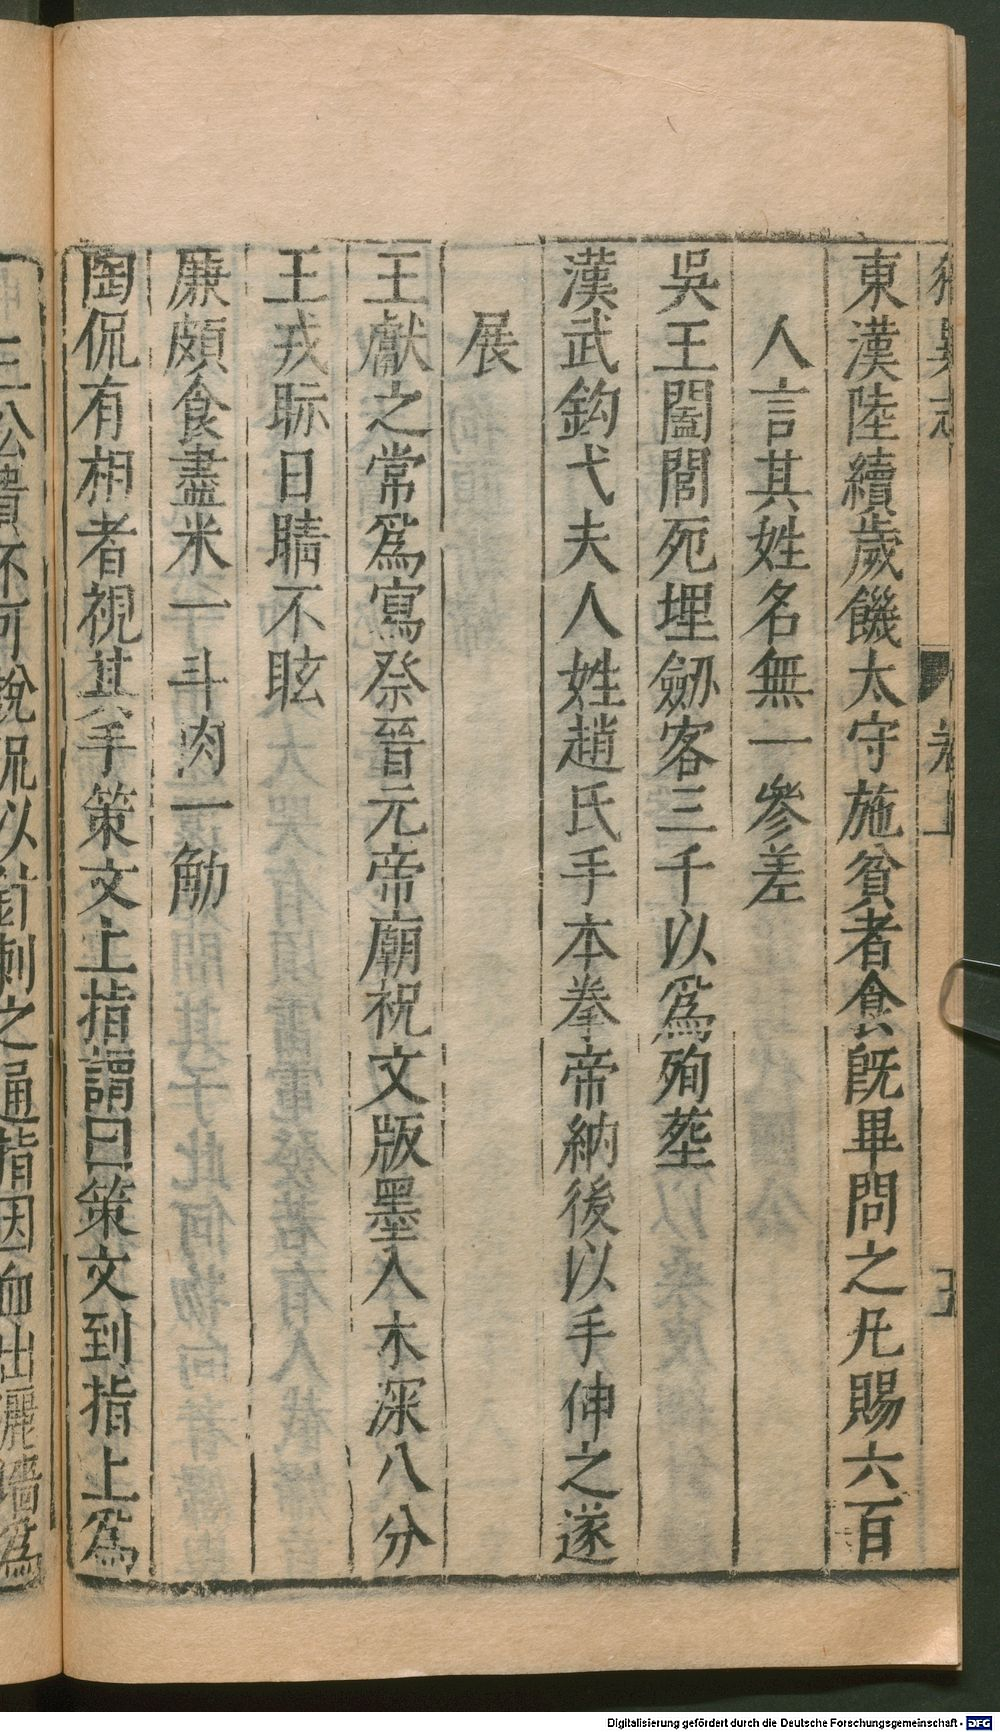 東漢陸續歲饑太守施貧者食旣畢問之凡賜六百
人言其姓名無一參差
吳王闔閭死埋劒客三千以爲殉塟
漢武鈎弋夫人姓趙氏手本拳帝納後以手伸之遂
展
王獻之常爲寫祭晉元帝廟祝文版墨入木深八分
王戎眎日睛不眩
廉頗食盡米一斗肉一觔
陶侃有相者視其手策文上指謂曰策文到指上爲
三公貴不可說侃以針刺之通指因血出灑墻爲
Digitalisierung gefördert durch die Deutsche Forschungsgemeinschaft - DFG